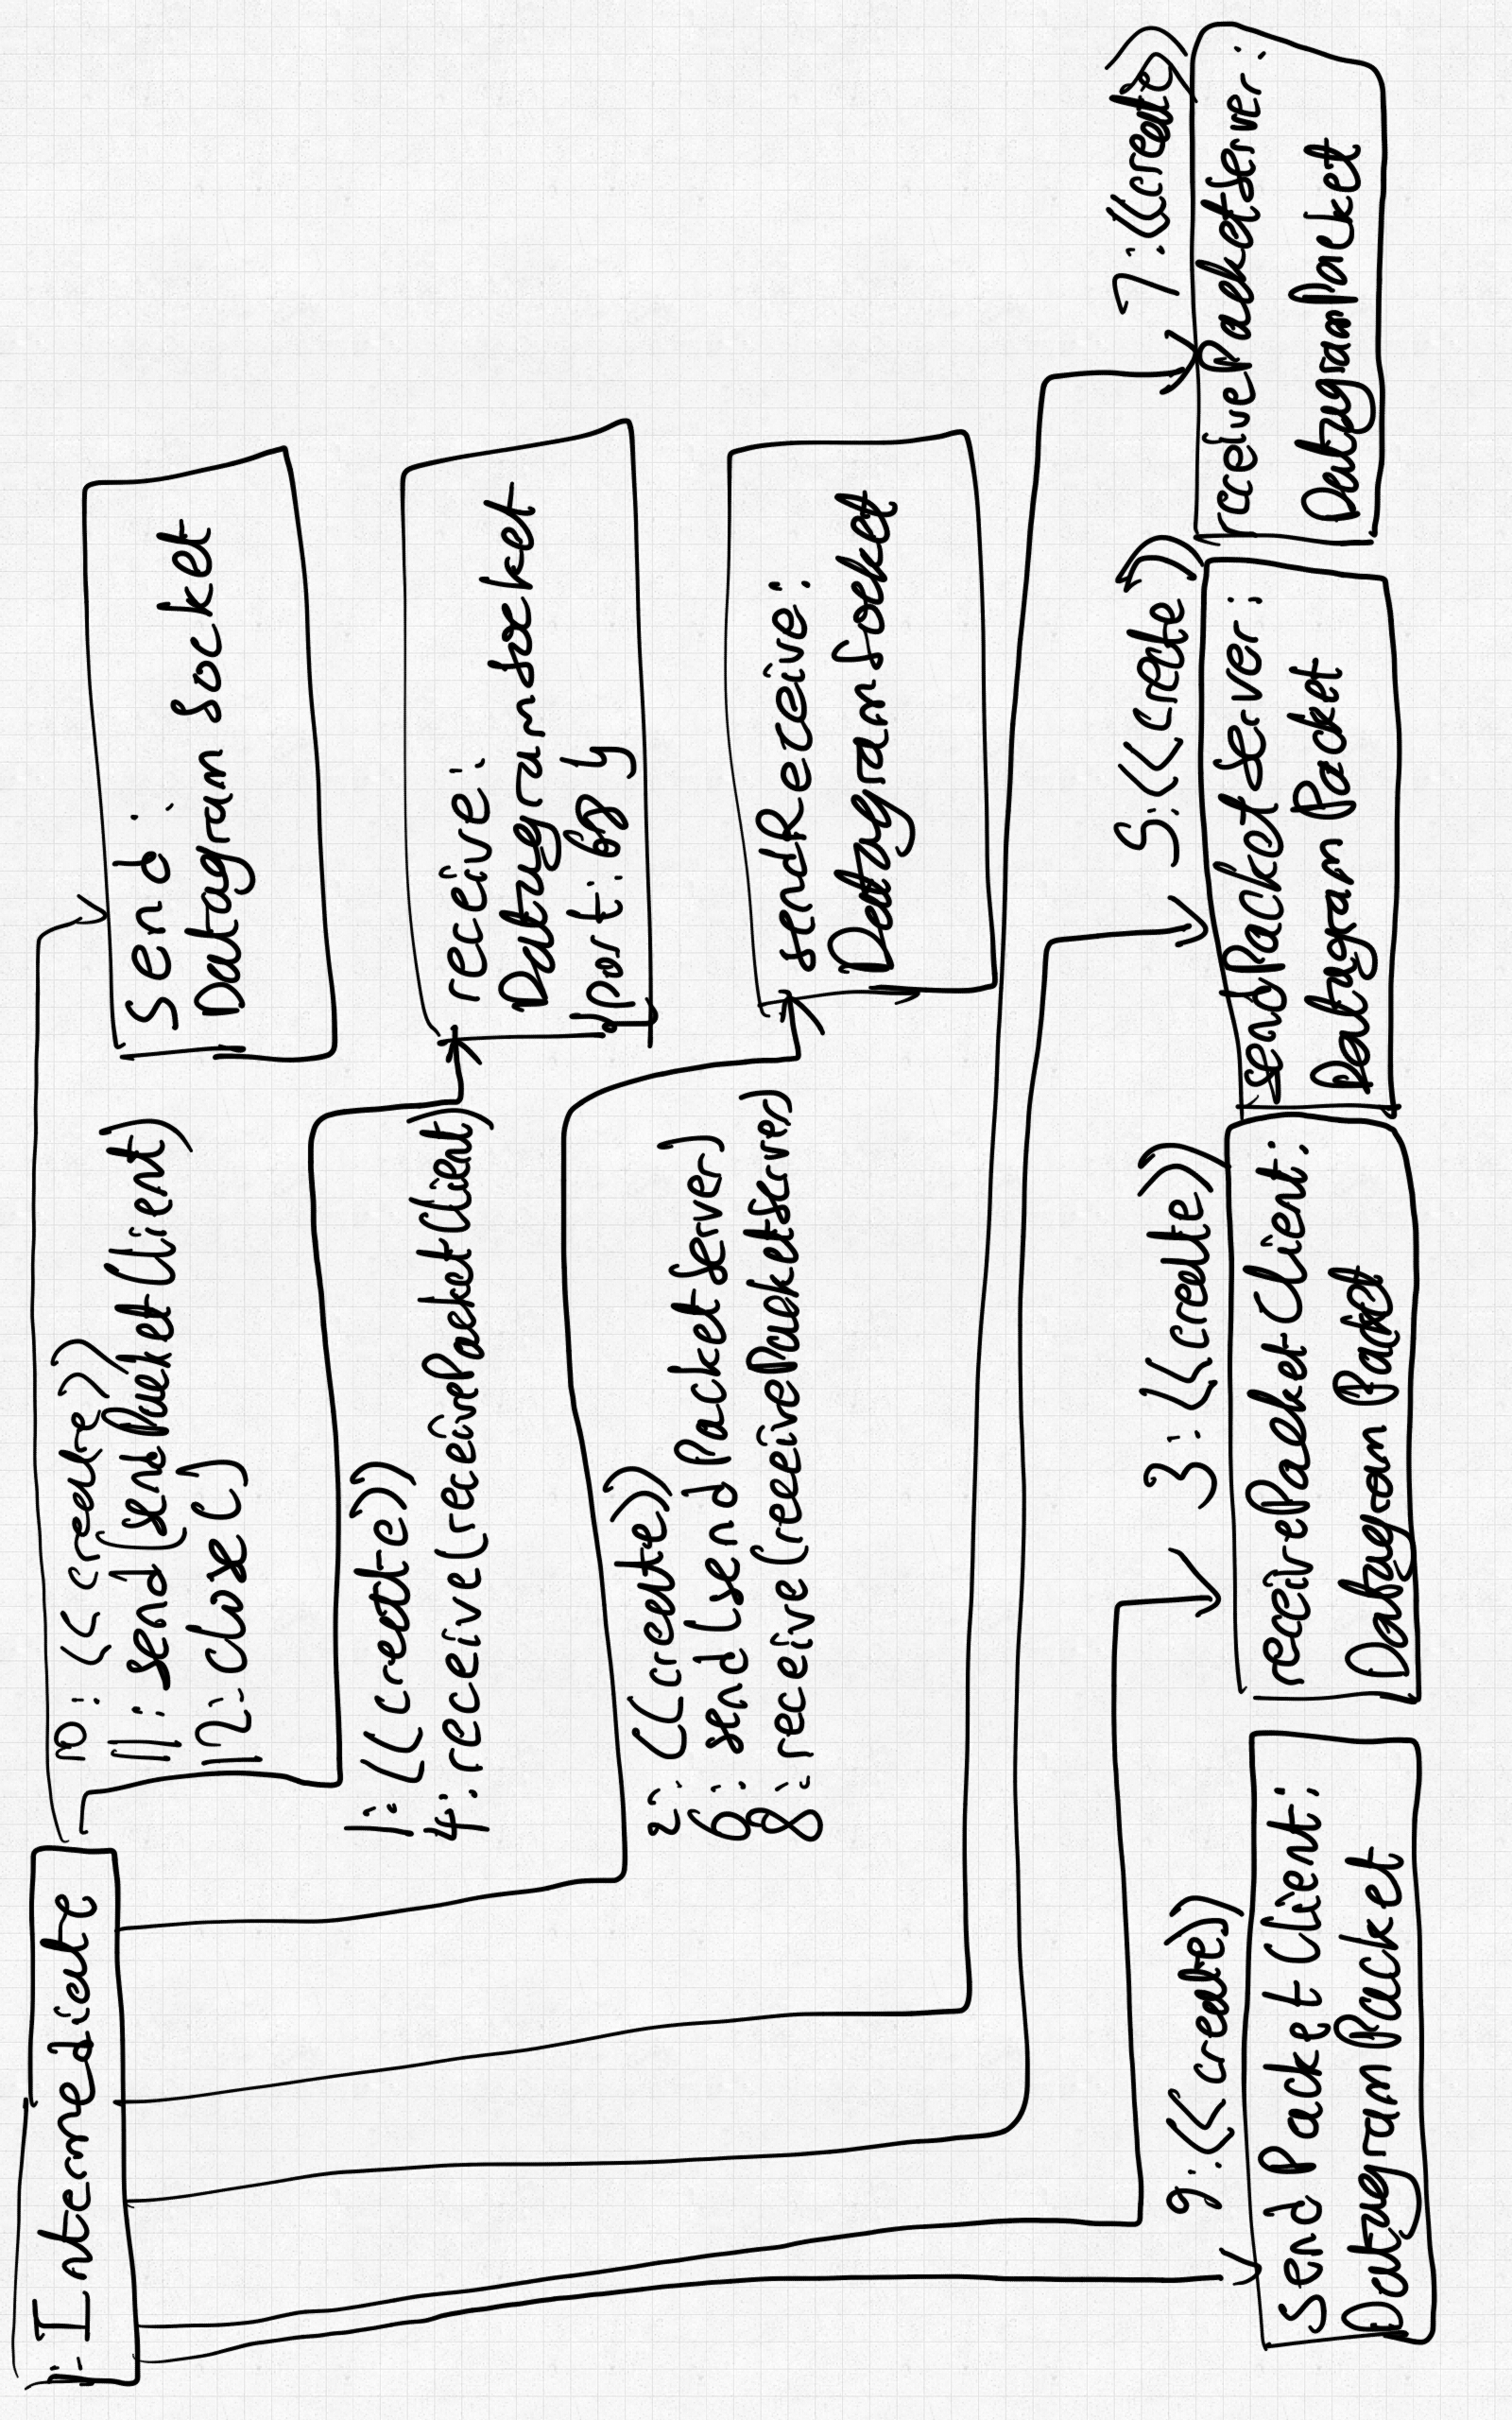 :Intermediate
10: <<create>>
11: send(sendPacketClient)
12: close()
send:
DatagramSocket
1: <<create>>
4: receive(receivePacketClient)
receive:
DatagramSocket
2: <<create>>
6: send(sendPacketServer)
8: receive(receivePacketServer)
sendReceive:
DatagramSocket
9: <<create>>
sendPacketClient:
DatagramPacket
3: <<create>>
receivePacketClient:
DatagramPacket
5: <<create>>
sendPacketServer:
DatagramPacket
7: <<create>>
receivePacketServer:
DatagramPacket